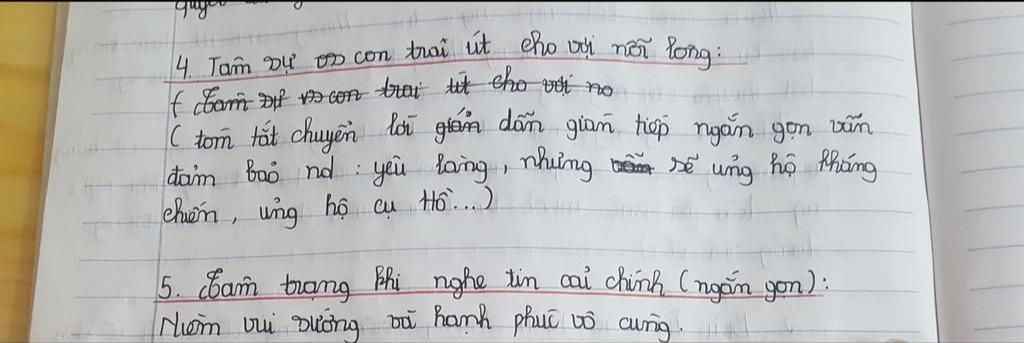 4. Tâm sự vs con trai út cho vơi nỗi lòng:
( Tâm sự vs con trai út cho vơi no
( tóm tắt chuyển lời gián dẫn gián tiếp ngắn gọn vẫn
đảm bảo nd : yêu làng, nhưng vẫn sẽ ủng hộ kháng
chiến, ủng hộ cụ Hồ...)
5. Tâm trạng khi nghe tin cải chính (ngắn gọn):
Niềm vui sướng và hạnh phúc vô cùng.